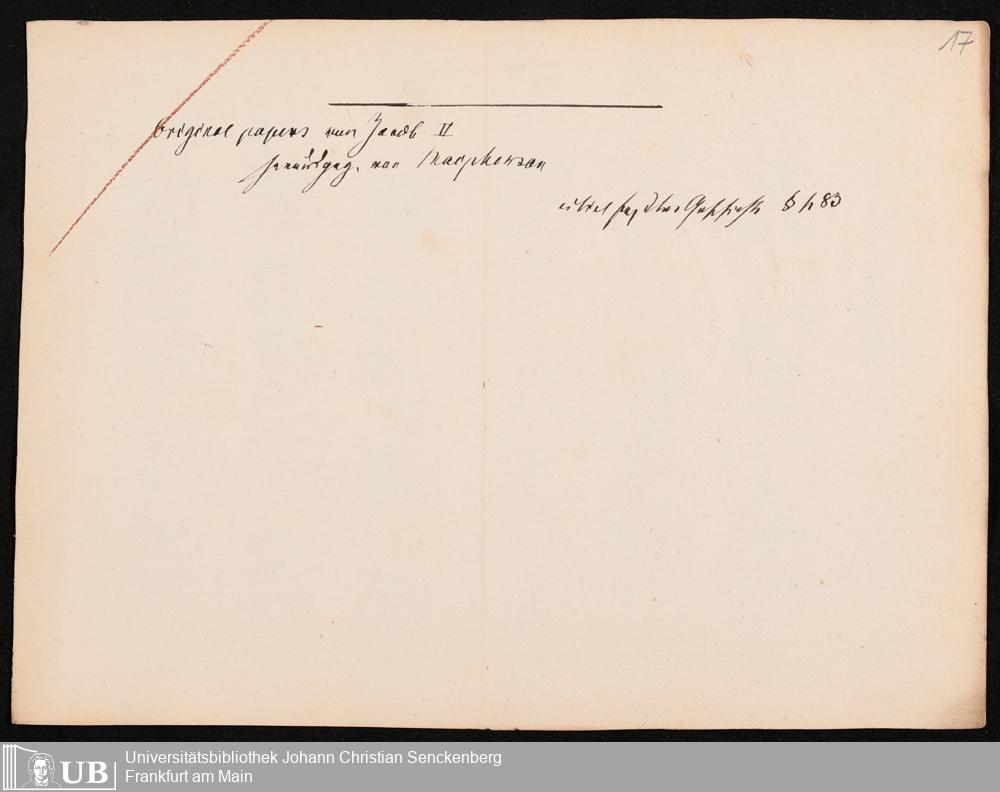 17
Original papers von Jacob II
herausgeg. von Macpherson
citirt § 483
Universitätsbibliothek Johann Christian Senckenberg
Frankfurt am Main
UB